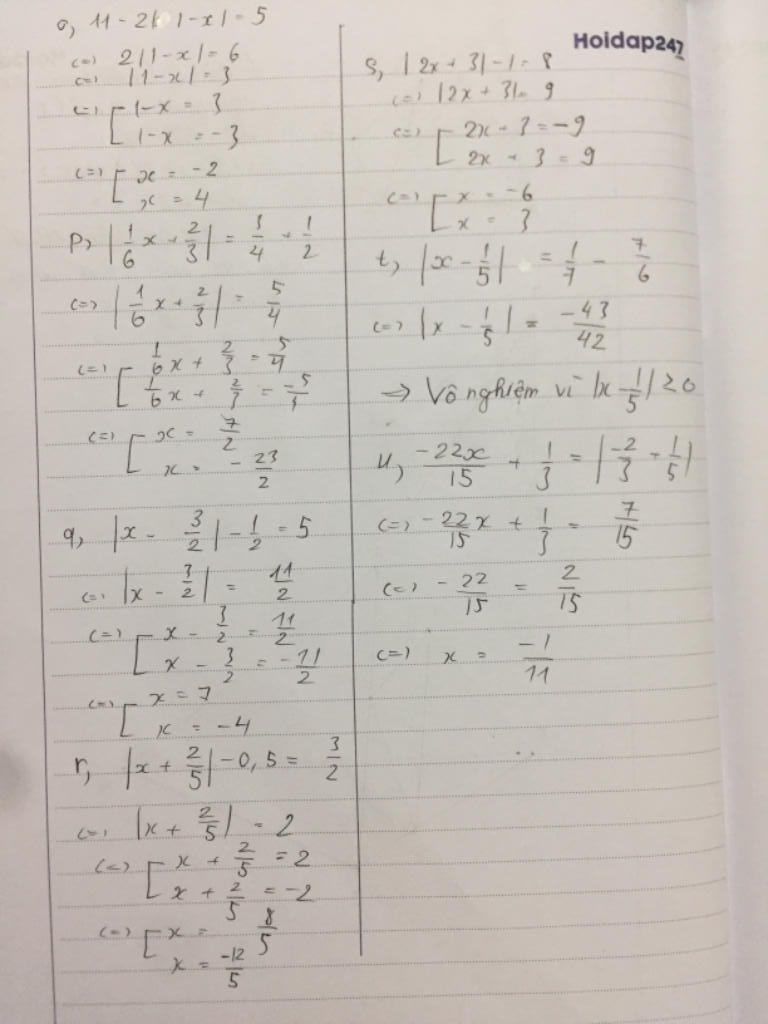 o, 11 - 2|1-x| = 5
<=> 2|1-x| = 6
<=> |1-x| = 3
<=> [ 1-x = 3
1-x = -3
<=> [ x = -2
x = 4
p, |1/6 x + 2/3| = 3/4 + 1/2
<=> |1/6 x + 2/3| = 5/4
<=> [ 1/6 x + 2/3 = 5/4
1/6 x + 2/3 = -5/4
<=> [ x = 7/2
x = -23/2
q, |x - 3/2| - 1/2 = 5
<=> |x - 3/2| = 11/2
<=> [ x - 3/2 = 11/2
x - 3/2 = -11/2
<=> [ x = 7
x = -4
r, |x + 2/5| - 0,5 = 3/2
<=> |x + 2/5| = 2
<=> [ x + 2/5 = 2
x + 2/5 = -2
<=> [ x = 8/5
x = -12/5
Hoidap247
s, |2x + 3| - 1 = 8
<=> |2x + 3| = 9
<=> [ 2x + 3 = -9
2x + 3 = 9
<=> [ x = -6
x = 3
t, |x - 1/5| = 1/7 - 7/6
<=> |x - 1/5| = -43/42
=> Vô nghiệm vì |x - 1/5| ≥ 0
u, -22x/15 + 1/3 = |-2/3 + 1/5|
<=> -22x/15 + 1/3 = 7/15
<=> -22/15 = 2/15
<=> x = -1/11